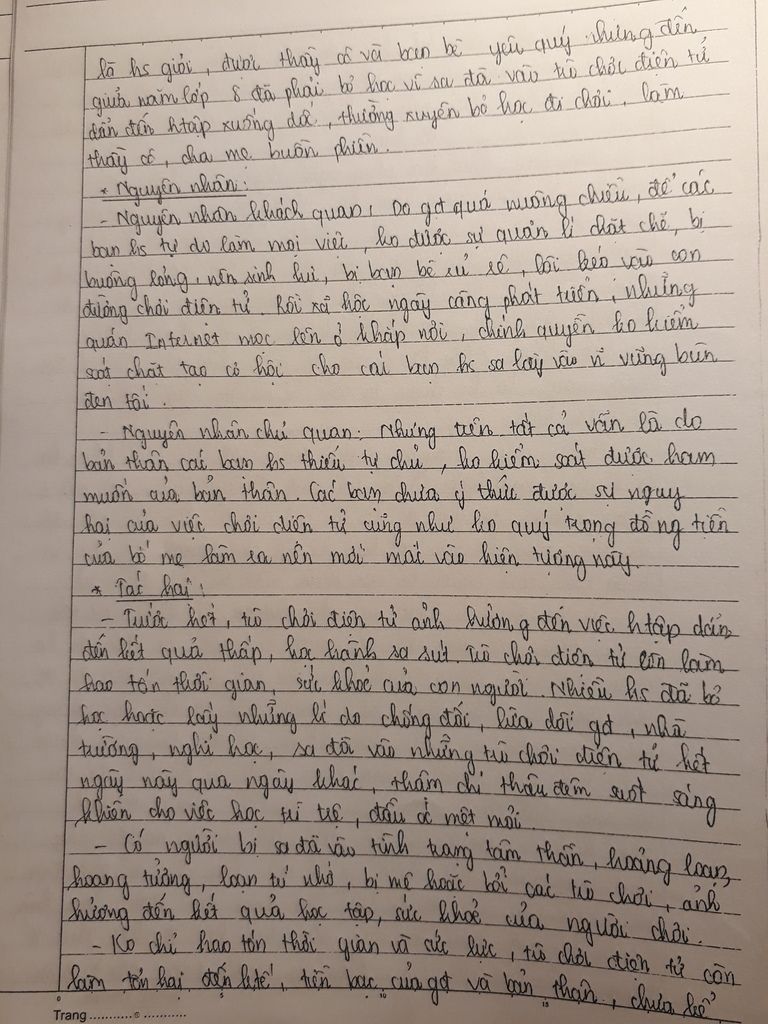 là hs giỏi, được thầy cô và bạn bè yêu quý nhưng đến
giữa năm lớp 8 đã phải bỏ học vì sa đà vào trò chơi điện tử
dẫn đến htập xuống dốc, thường xuyên bỏ học đi chơi, làm
thầy cô, cha mẹ buồn phiền.
* Nguyên nhân:
- Nguyên nhân khách quan: Do gđ quá nuông chiều, để các
bạn hs tự do làm mọi việc, ko được sự quản lí chặt chẽ, bị
buông lỏng, nên sinh hư, bị bạn bè rủ rê, lôi kéo vào con
đường chơi điện tử. Rồi xã hội ngày càng phát triển, những
quán Internet mọc lên ở khắp nơi, chính quyền ko kiểm
soát chặt tạo cơ hội cho các bạn hs sa lầy vào vì vũng bùn
đen tối.
- Nguyên nhân chủ quan: Nhưng trên tất cả vẫn là do
bản thân các bạn hs thiếu tự chủ, ko kiểm soát được ham
muốn của bản thân. Các bạn chưa ý thức được sự nguy
hại của việc chơi điện tử cũng như ko quý trọng đồng tiền
của bố mẹ làm ra nên mới mắt vào hiện tượng này.
* Tác hại:
- Trước hết, trò chơi điện tử ảnh hưởng đến việc htập dẫn
đến kết quả thấp, học hành sa sút. Trò chơi điện tử còn làm
hao tốn thời gian, sức khoẻ của con người. Nhiều hs đã bỏ
học hoặc lấy những lí do chống đối, lừa dối gđ, nhà
trường, nghỉ học, sa đà vào những trò chơi điện tử hết
ngày này qua ngày khác, thậm chí thâu đêm suốt sáng
khiến cho việc học trì trệ, đầu óc mệt mỏi.
- Có người bị sa đà vào tình trạng tâm thần, hoảng loạn,
hoang tưởng, loạn trí nhớ, bị mê hoặc bởi các trò chơi, ảnh
hưởng đến kết quả học tập, sức khoẻ của người chơi.
- Ko chỉ hao tốn thời gian và sức lực, trò chơi điện tử còn
làm tổn hại đến ktế, tiền bạc của gđ và bản thân, chưa kể
0 5 10 15
Trang ...........©...........